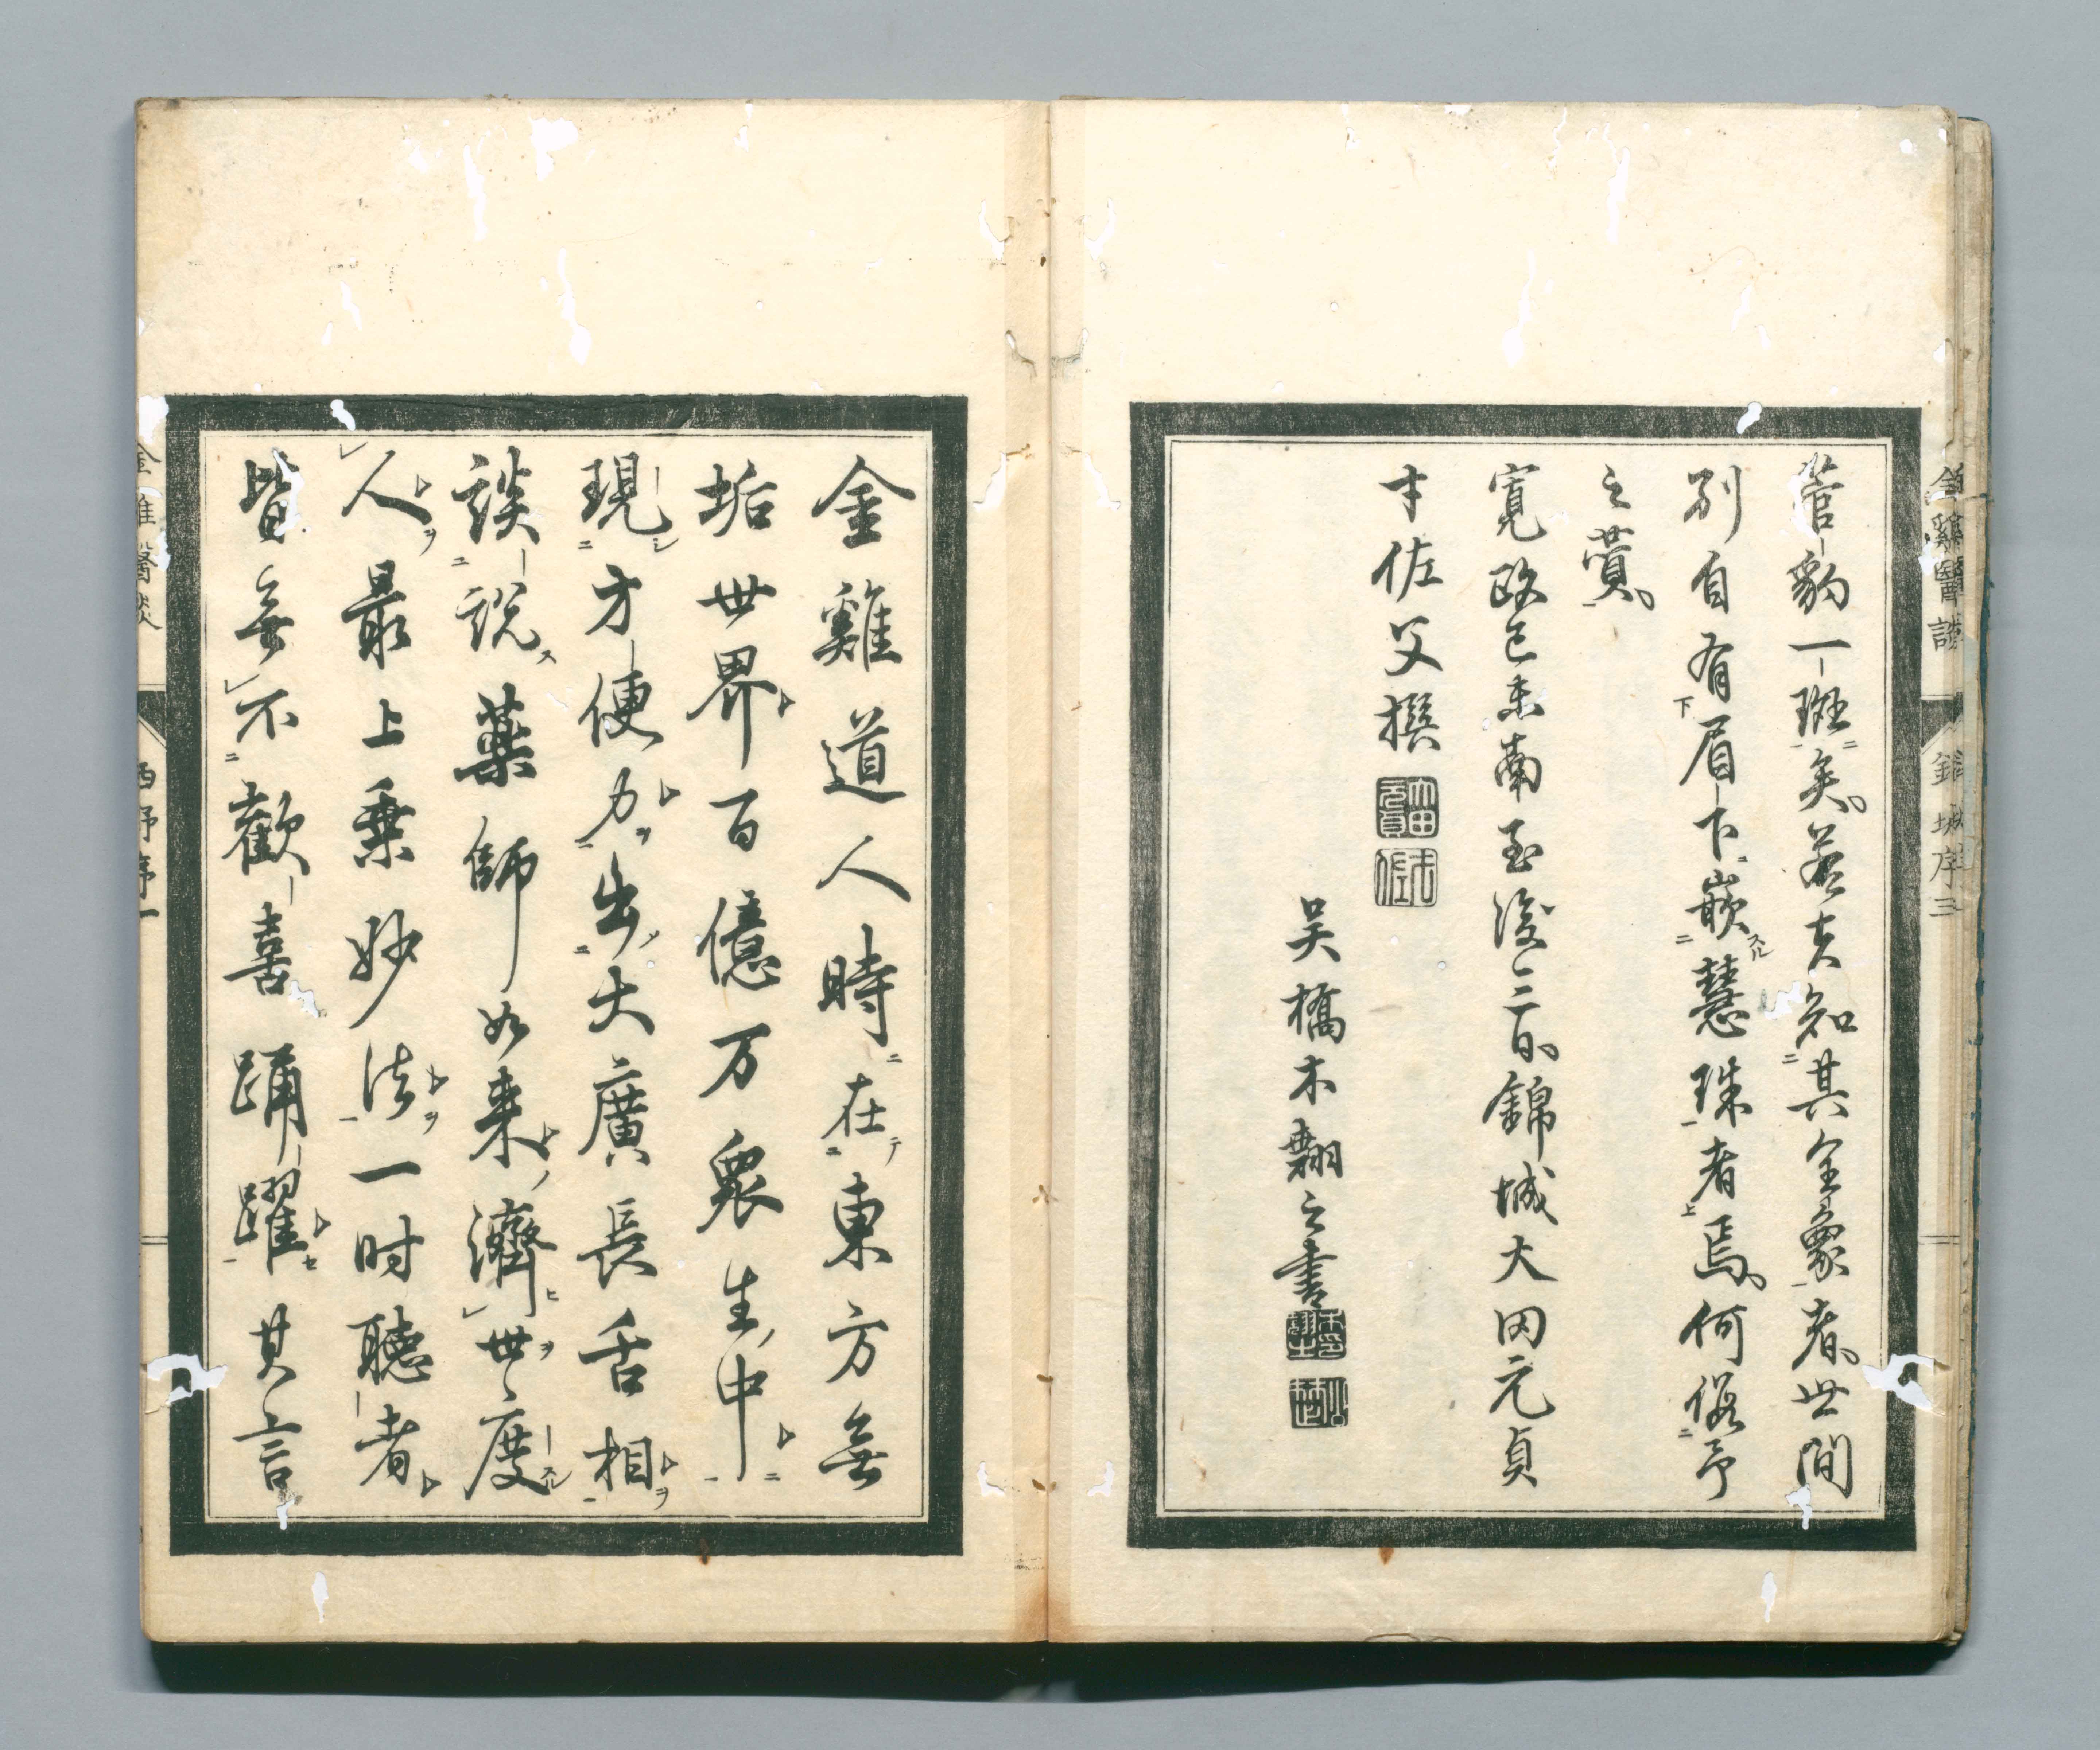 金雞醫談
錦城序三
管豹一斑矣若夫知其全象者世間
別自有眉下嵌慧珠者焉何俟予
之贅
寛政己未南至後三日錦城大田元貞
才佐父撰
吳橋木翺之書
金雞道人時在東方無
垢世界百億万衆生中
現方便力出大廣長舌相
談説藥師如来濟世度
人最上乗妙法一时聽者
皆無不歡喜踊躍其言
金雞醫談
西野序一